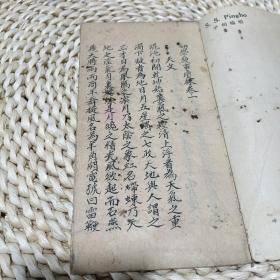 卷一
天文
混沌初開乾坤始奠氣之輕清上浮者為天氣之重
濁下凝者為地日月五星謂之七政天地與人謂之
三才日為眾陽之宗月乃太陰之象虹名螮蝀乃天
地之淫氣月裏蟾蜍是月魄之精光風欲起而石燕
飛天將雨而商羊舞旋風名為羊角閃電號曰雷鞭
S. S. Pingho